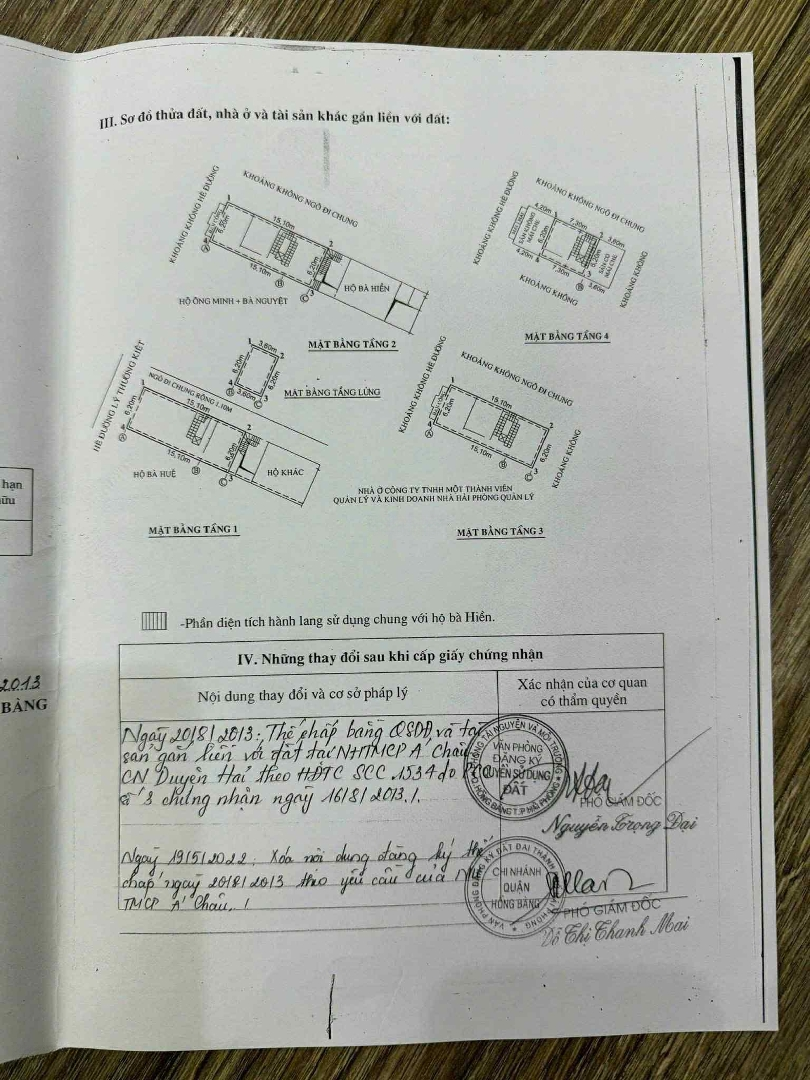 III. Sơ đồ thửa đất, nhà ở và tài sản khác gắn liền với đất:
KHOẢNG KHÔNG HÈ ĐƯỜNG
KHOẢNG KHÔNG NGÕ ĐI CHUNG
1
15,10m
2
6,20m
4
A
15,10m
B
6,20m
C
3
HỘ BÀ HIỀN
HỘ ÔNG MINH + BÀ NGUYỆT
MẶT BẰNG TẦNG 2
KHOẢNG KHÔNG HÈ ĐƯỜNG
KHOẢNG KHÔNG NGÕ ĐI CHUNG
4,20m
1
7,30m
2
3,60m
SÂN KHÔNG
MÁI CHE
6,20m
5,20m
SÂN CÓ
MÁI CHE
4,20m
4
7,30m
3
B
3,60m
KHOẢNG KHÔNG
KHOẢNG KHÔNG
MẶT BẰNG TẦNG 4
1
3,60m
2
6,20m
6,20m
4
B
3,60m
C
3
MẶT BẰNG TẦNG LỬNG
HÈ ĐƯỜNG LÝ THƯỜNG KIỆT
NGÕ ĐI CHUNG RỘNG 1.10M
1
15,10m
2
6,20m
4
A
15,10m
B
6,20m
C
3
HỘ BÀ HUỆ
HỘ KHÁC
MẶT BẰNG TẦNG 1
KHOẢNG KHÔNG HÈ ĐƯỜNG
KHOẢNG KHÔNG NGÕ ĐI CHUNG
1
15,10m
2
6,20m
4
A
15,10m
B
6,20m
C
3
KHOẢNG KHÔNG
NHÀ Ở CÔNG TY TNHH MỘT THÀNH VIÊN
QUẢN LÝ VÀ KINH DOANH NHÀ HẢI PHÒNG QUẢN LÝ
MẶT BẰNG TẦNG 3
hạn
hữu
-Phần diện tích hành lang sử dụng chung với hộ bà Hiền.
2013
BÀNG
IV. Những thay đổi sau khi cấp giấy chứng nhận
Nội dung thay đổi và cơ sở pháp lý
Xác nhận của cơ quan
có thẩm quyền
Ngày 20/8/2013: Thế chấp bằng QSDĐ và tài
sản gắn liền với đất tại NHTMCP Á Châu
CN Duyên Hải theo HĐTC SCC .1534 do PCC
số 3 chứng nhận ngày 16/8/2013./.
PHÒNG TÀI NGUYÊN VÀ MÔI TRƯỜNG
VĂN PHÒNG
ĐĂNG KÝ
QUYỀN SỬ DỤNG
ĐẤT
Q. HỒNG BÀNG T.P HẢI PHÒNG
PHÓ GIÁM ĐỐC
Nguyễn Trọng Đại
Ngày 19/5/2022: Xóa nội dung đăng ký thế
chấp ngày 20/8/2013 theo yêu cầu của NH
TMCP Á Châu./
VĂN PHÒNG ĐĂNG KÝ ĐẤT ĐAI THÀNH PHỐ HẢI PHÒNG
CHI NHÁNH
QUẬN
HỒNG BÀNG
PHÓ GIÁM ĐỐC
Đỗ Thị Thanh Mai